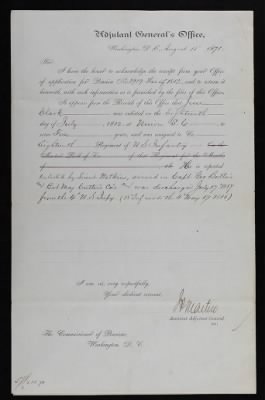 Adjutant General's Office,
Washington, D. C., August 15th 1871.
Sir:
I have the honor to acknowledge the receipt from your Office
of application for Pension No. 7919 War of 1812, and to return it
herewith, with such information as is furnished by the files of this Office.
It appears from the Records of this Office that
Clark was enlisted on the eighteenth
day of July, 1812 at Union
to serve Five years, and was assigned to Co.
Eighteenth Regiment of U S Infantry
of He is reported
enlisted by Lieut Watkins, served in Capt
and was discharged July 17 1817
from the 4" U. S. Infy
I am sir, very respectfully,
Your obedient servant,
Assistant Adjutant General.
The Commissioner of Pensions,
Washington, D. C.